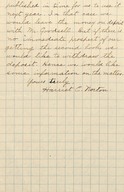 published in time for us to use it
next year. In that case we
would leave the money on deposit
with Mr. Goodsell. But if there is
no immediate prospect of our
getting the second book we
would like to withdraw the
deposit. Hence we would like
some information on the matter.
Yours truly,
Harriet C. Norton